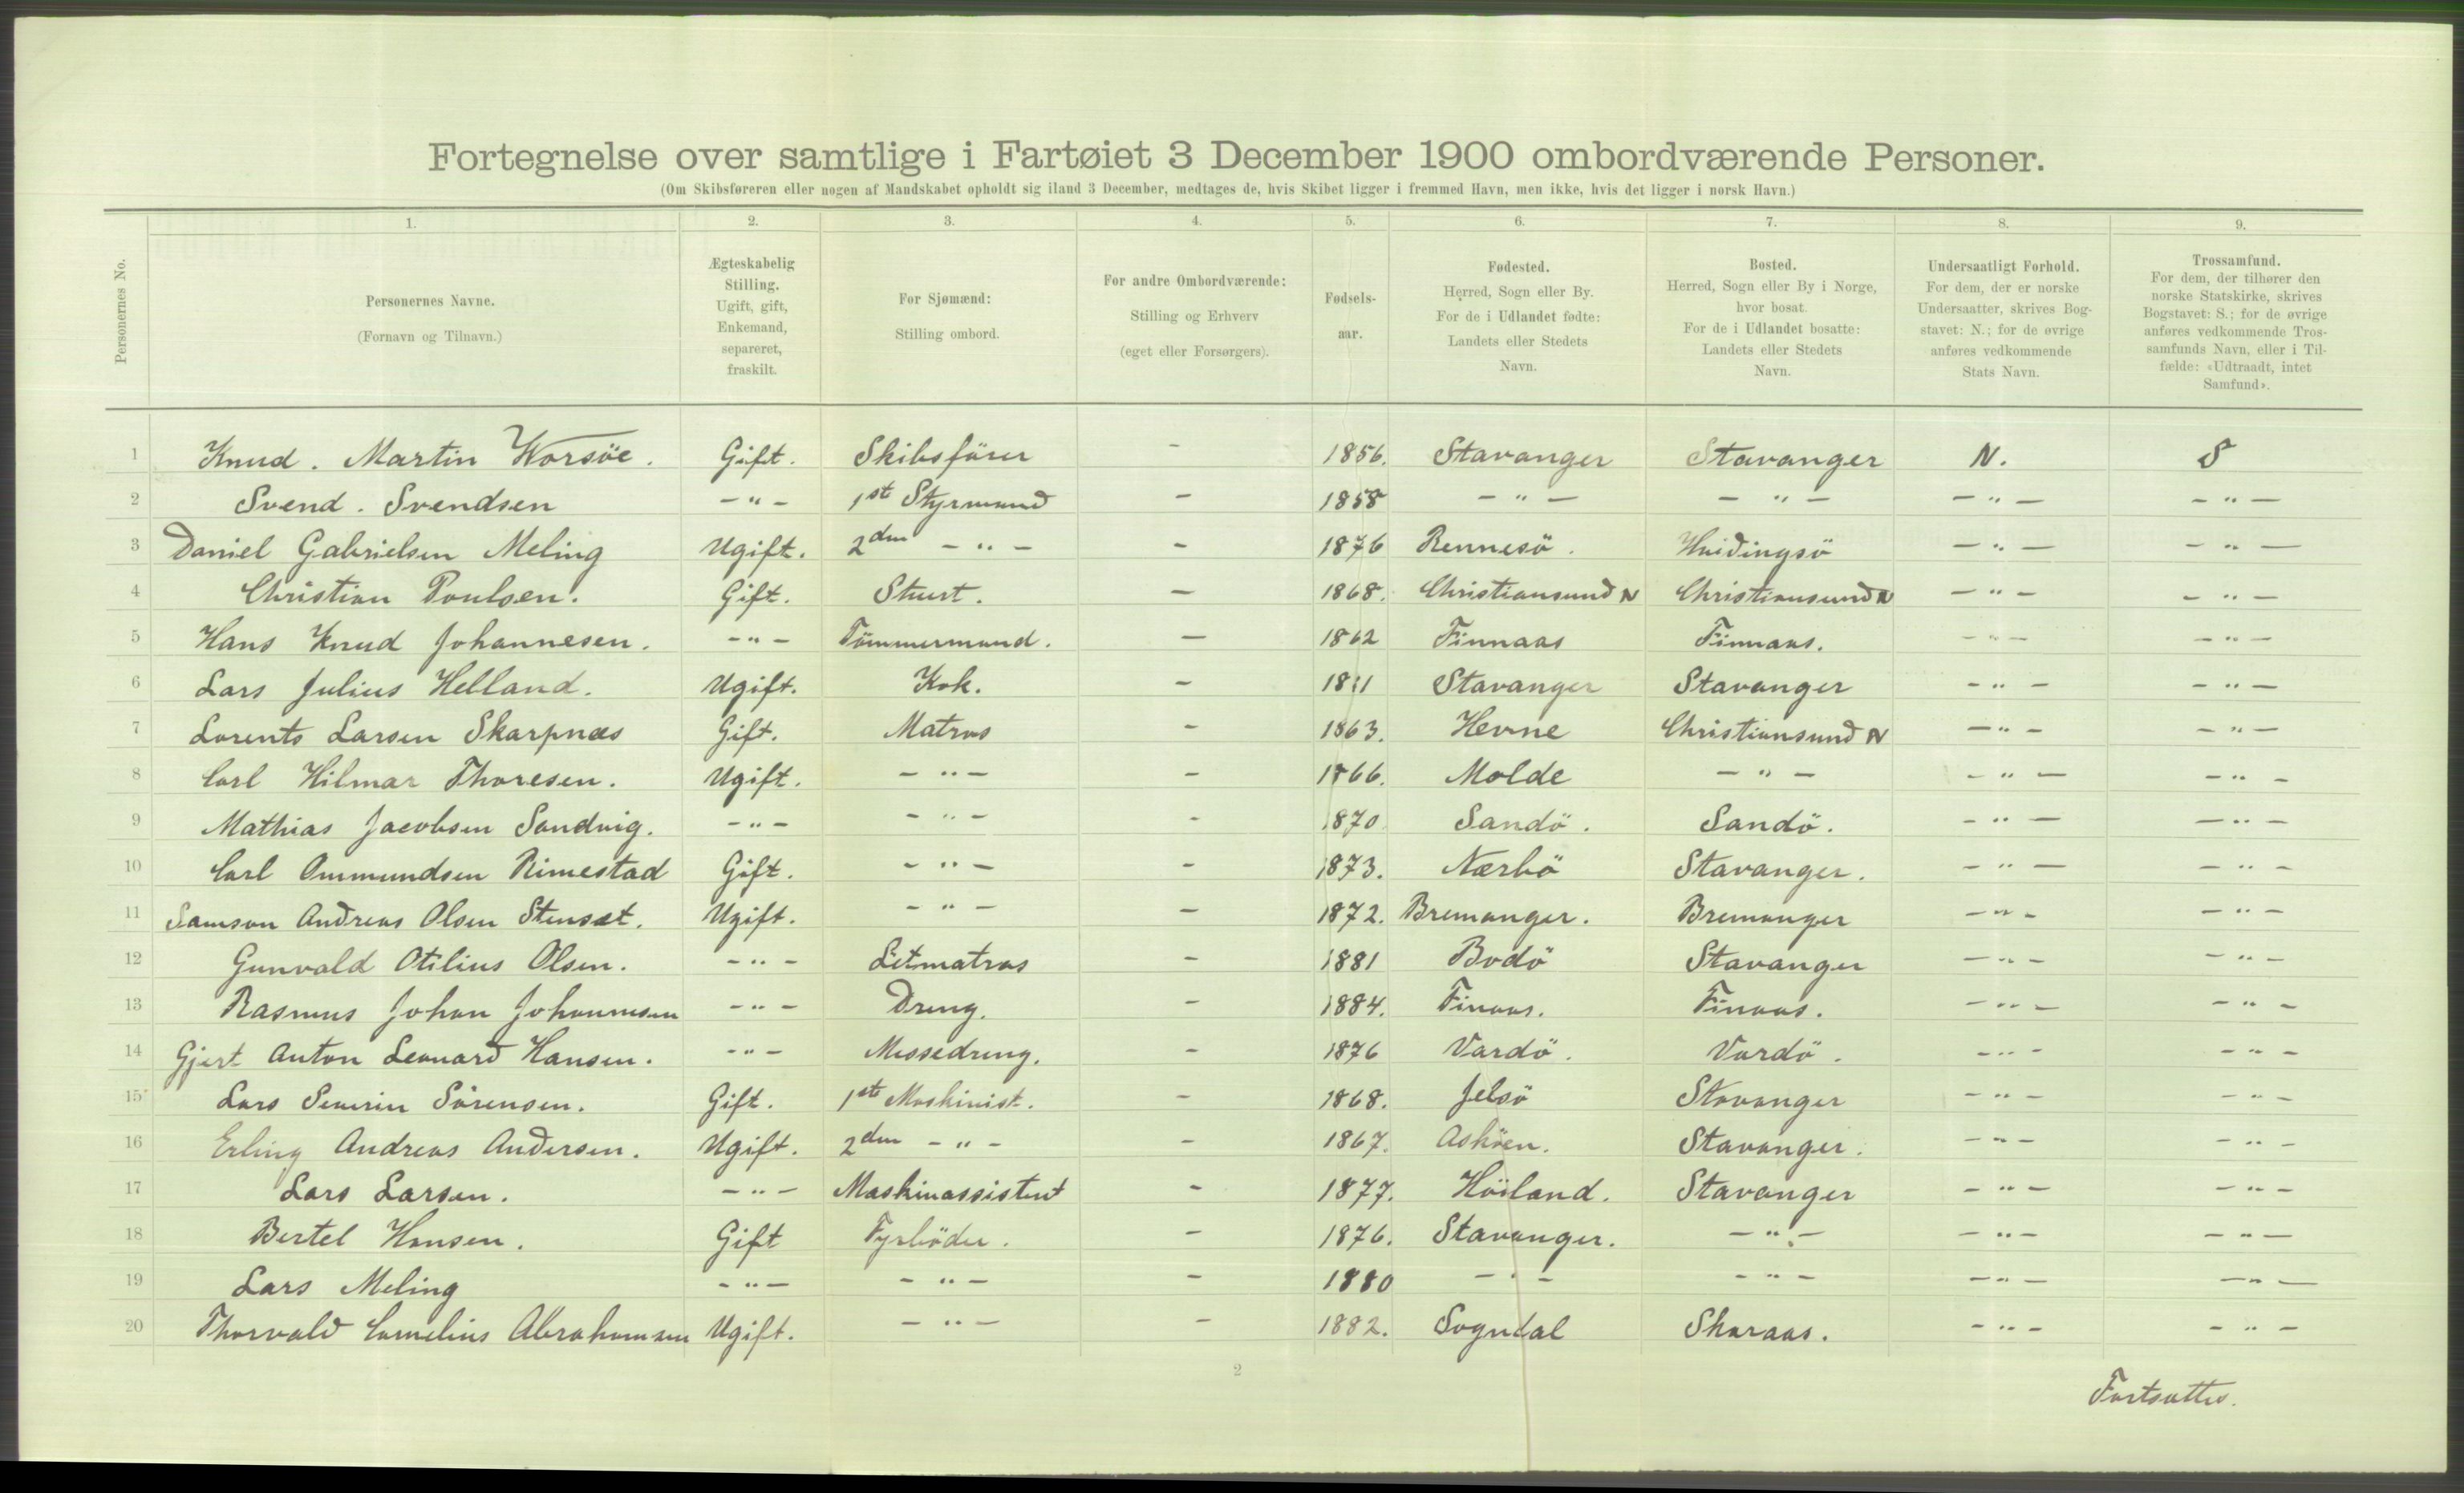 Fortegnelse over samtlige i Fartøiet 3 December 1900 ombordværende Personer.
(Om Skibsføreren eller nogen af Mandskabet opholdt sig iland 3 December, medtages de, hvis Skibet ligger i fremmed Havn, men ikke, hvis det ligger i norsk Havn.)
Personernes No.
1. 2. 3. 4. 5. 6. 7. 8. 9.
Personernes Navne.
(Fornavn og Tilnavn.)
Ægteskabelig
Stilling.
Ugift, gift,
Enkemand,
separeret,
fraskilt.
For Sjømænd:
Stilling ombord.
For andre Ombordværende:
Stilling og Erhverv
(eget eller Forsørgers).
Fødsels-
aar.
Fødested.
Herred, Sogn eller By.
For de i Udlandet fødte:
Landets eller Stedets
Navn.
Bosted.
Herred, Sogn eller By i Norge,
hvor bosat.
For de i Udlandet bosatte:
Landets eller Stedets
Navn.
Undersaatligt Forhold.
For dem, der er norske
Undersaatter, skrives Bog-
stavet: N.; for de øvrige
anføres vedkommende
Stats Navn.
Trossamfund.
For dem, der tilhører den
norske Statskirke, skrives
Bogstavet: S.; for de øvrige
anføres vedkommende Tros-
samfunds Navn, eller i Til-
fælde: «Udtraadt, intet
Samfund».
1 Knud. Martin Worsöe. Gift. Skibsförer - 1856. Stavanger Stavanger N. S
2 Svend. Svendsen -"- 1st Styrmand - 1858 -"- -"- -"- -"-
3 Daniel Gabrielsen Meling Ugift. 2den -"- - 1876 Rennesö. Hvidingsö -"- -"-
4 Christian Poulsen. Gift. Stuert. - 1868. Christiansund N Christiansund N -"- -"-
5 Hans Knud Johannesen. -"- Tömmermand. - 1862 Finnaas Finnaas. -"- -"-
6 Lars Julius Helland. Ugift. Kok. - Stavanger Stavanger -"- -"-
7 Lorents Larsen Skarpnæs Gift. Matros - 1863. Hevne Christiansund N -"- -"-
8 Carl Hilmar Thoresen. Ugift. -"- - 1866. Molde -"- -"- -"-
9 Mathias Jacobsen Sandvig. -"- -"- - 1870 Sandö. Sandö. -"- -"-
10 Carl Ommundsen Rimestad Gift. -"- - 1873. Nærbö Stavanger. -"- -"-
11 Samson Andreas Olsen Stenset. Ugift. -"- - 1872. Bremanger. Bremanger -"- -"-
12 Gunvald Otilius Olsen. -"- Letmatros - 1881 Bodö Stavanger -"- -"-
13 Rasmus Johan Johannesen -"- Dreng. - 1884. Finaas. Finaas. -"- -"-
14 Gjert Anton Leonard Hansen. -"- Messedreng. - 1876 Vardö. Vardö. -"- -"-
15 Lars Severin Sörensen. Gift. 1ste Maskinist. - 1868. Jelsö Stavanger -"- -"-
16 Erling Andreas Andersen. Ugift. 2den -"- - 1867. Asköen. Stavanger. -"- -"-
17 Lars Larsen. -"- Maskinassistent - 1877. Höiland. Stavanger -"- -"-
18 Bertel Hansen. Gift Fyrböder. - 1876. Stavanger. -"- -"- -"-
19 Lars Meling -"- -"- - 1880 -"- -"- -"- -"-
20 Thorvald Cornelius Abrahamsen Ugift. -"- - 1882. Sogndal Skaraas. -"- -"-
2
Fortsattes.